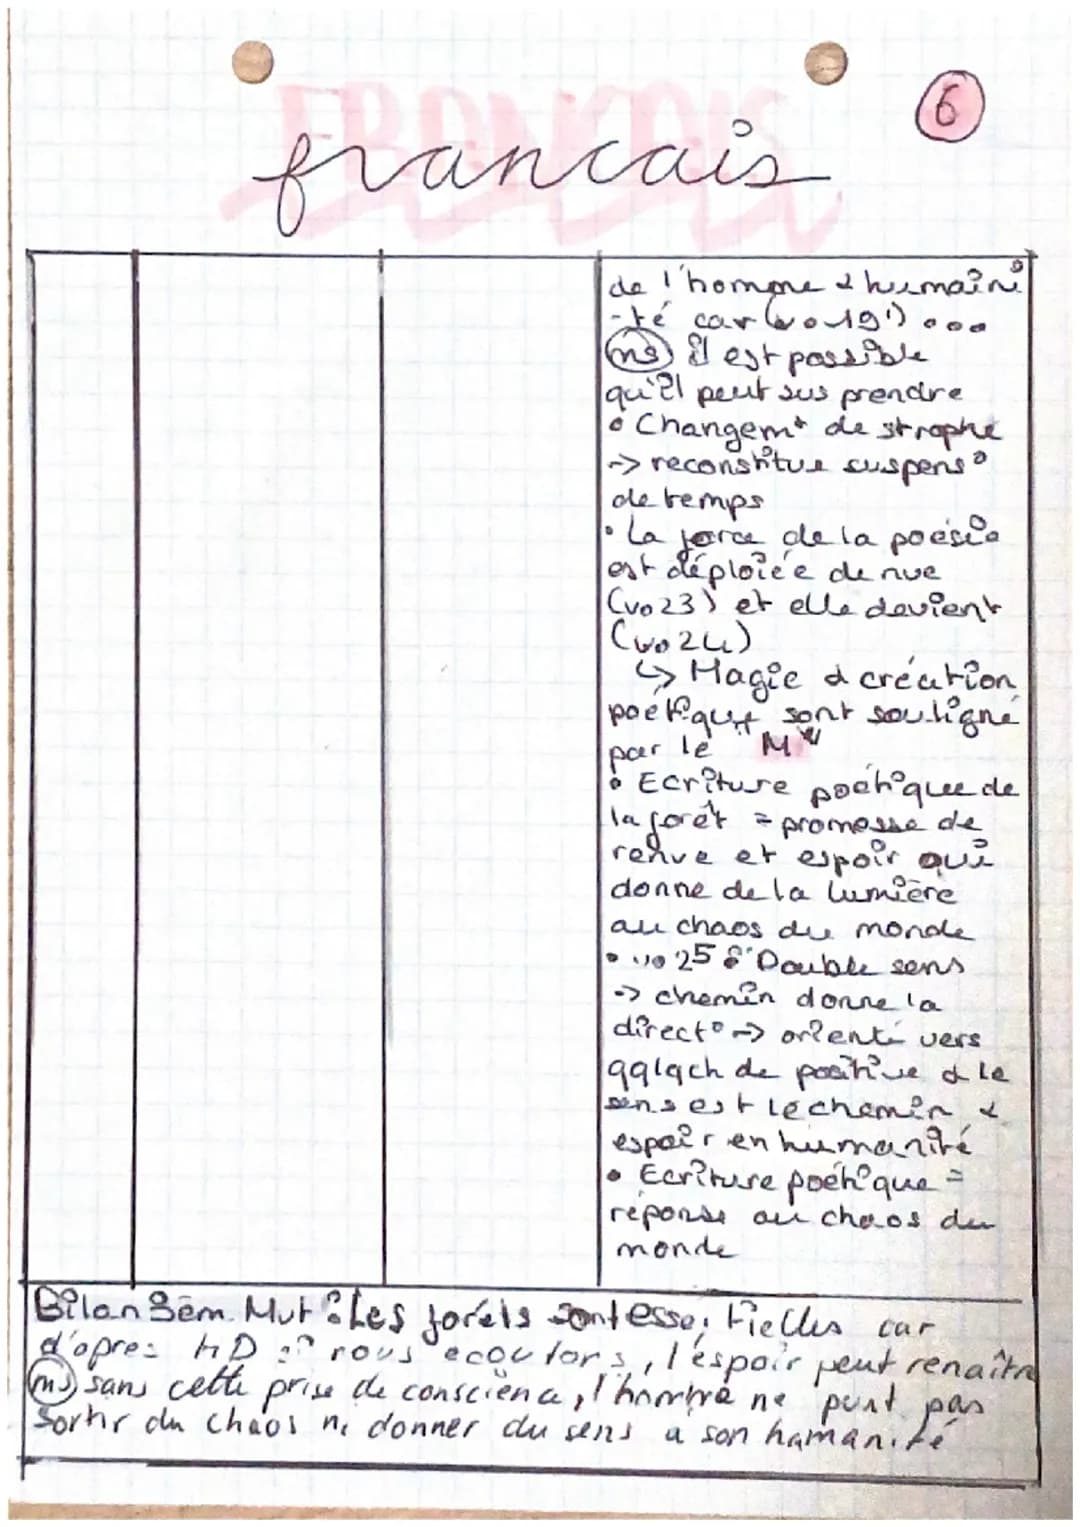 FRANCAIS
6
francais
de l'homme & humaini
-té car (vo19') ...
(ms) il est possible
qu'il peut sus prendre
• Changemt de strophe
-> reconstitue suspens°
de temps
• La force de la poésie
est déploiée de nue
(vo23) et elle devient
(vo24)
↳ Magie & création
poétique sont souligné
par le "M"
• Ecriture poétique de
la forêt = promesse de
et espoir qui
donne de la lumière
au chaos du monde
• vo 25 : Double sens
-> chemin donne la
direct° -> orienté vers
qqlqch de positive & le
sens est le chemin &
espoir en humanité
• Ecriture poétique =
réponse au chaos du
monde
Bilan 3em Mvt : Les forêts sont essentielles car
d'apres HD si nous ecoutons, l'espoir peut renaître
(ms) sans cette prise de conscience, l'homme ne peut pas
sortir du chaos ni donner du sens a son humanité